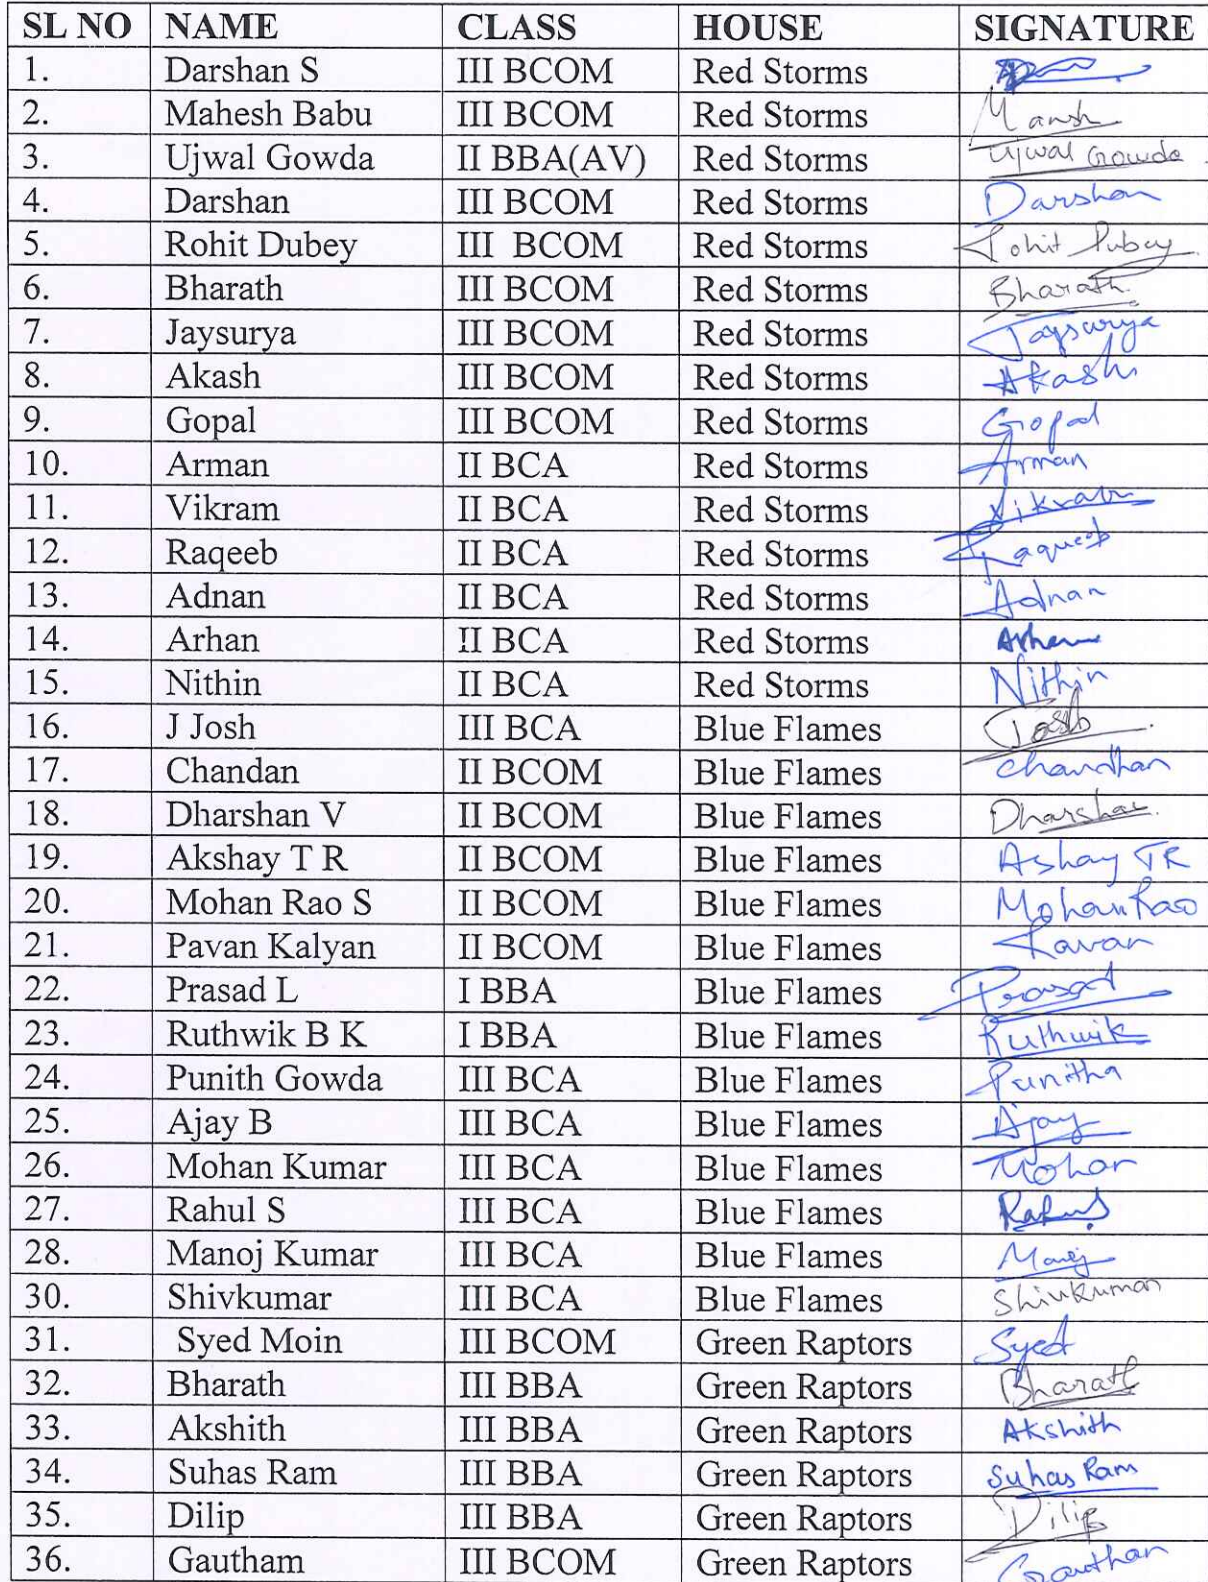 SL NO NAME CLASS HOUSE SIGNATURE
1. Darshan S III BCOM Red Storms
2. Mahesh Babu III BCOM Red Storms
3. Ujwal Gowda II BBA(AV) Red Storms Ujwal Gowda
4. Darshan III BCOM Red Storms Darshan
5. Rohit Dubey III BCOM Red Storms Rohit Dubey
6. Bharath III BCOM Red Storms Bharath
7. Jaysurya III BCOM Red Storms Jaysurya
8. Akash III BCOM Red Storms Akash
9. Gopal III BCOM Red Storms Gopal
10. Arman II BCA Red Storms Arman
11. Vikram II BCA Red Storms Vikram
12. Raqeeb II BCA Red Storms Raqueeb
13. Adnan II BCA Red Storms Adnan
14. Arhan II BCA Red Storms Arhan
15. Nithin II BCA Red Storms Nithin
16. J Josh III BCA Blue Flames Josh
17. Chandan II BCOM Blue Flames Chandhan
18. Dharshan V II BCOM Blue Flames Dharshan
19. Akshay T R II BCOM Blue Flames Ashay TR
20. Mohan Rao S II BCOM Blue Flames Mohan Rao
21. Pavan Kalyan II BCOM Blue Flames Pavan
22. Prasad L I BBA Blue Flames Prasad
23. Ruthwik B K I BBA Blue Flames Ruthwik
24. Punith Gowda III BCA Blue Flames Punitha
25. Ajay B III BCA Blue Flames Ajay
26. Mohan Kumar III BCA Blue Flames Mohan
27. Rahul S III BCA Blue Flames Rahul S
28. Manoj Kumar III BCA Blue Flames Manoj
30. Shivkumar III BCA Blue Flames Shivkumar
31. Syed Moin III BCOM Green Raptors Syed
32. Bharath III BBA Green Raptors Bharath
33. Akshith III BBA Green Raptors Akshith
34. Suhas Ram III BBA Green Raptors Suhas Ram
35. Dilip III BBA Green Raptors Dilip
36. Gautham III BCOM Green Raptors Gauthan